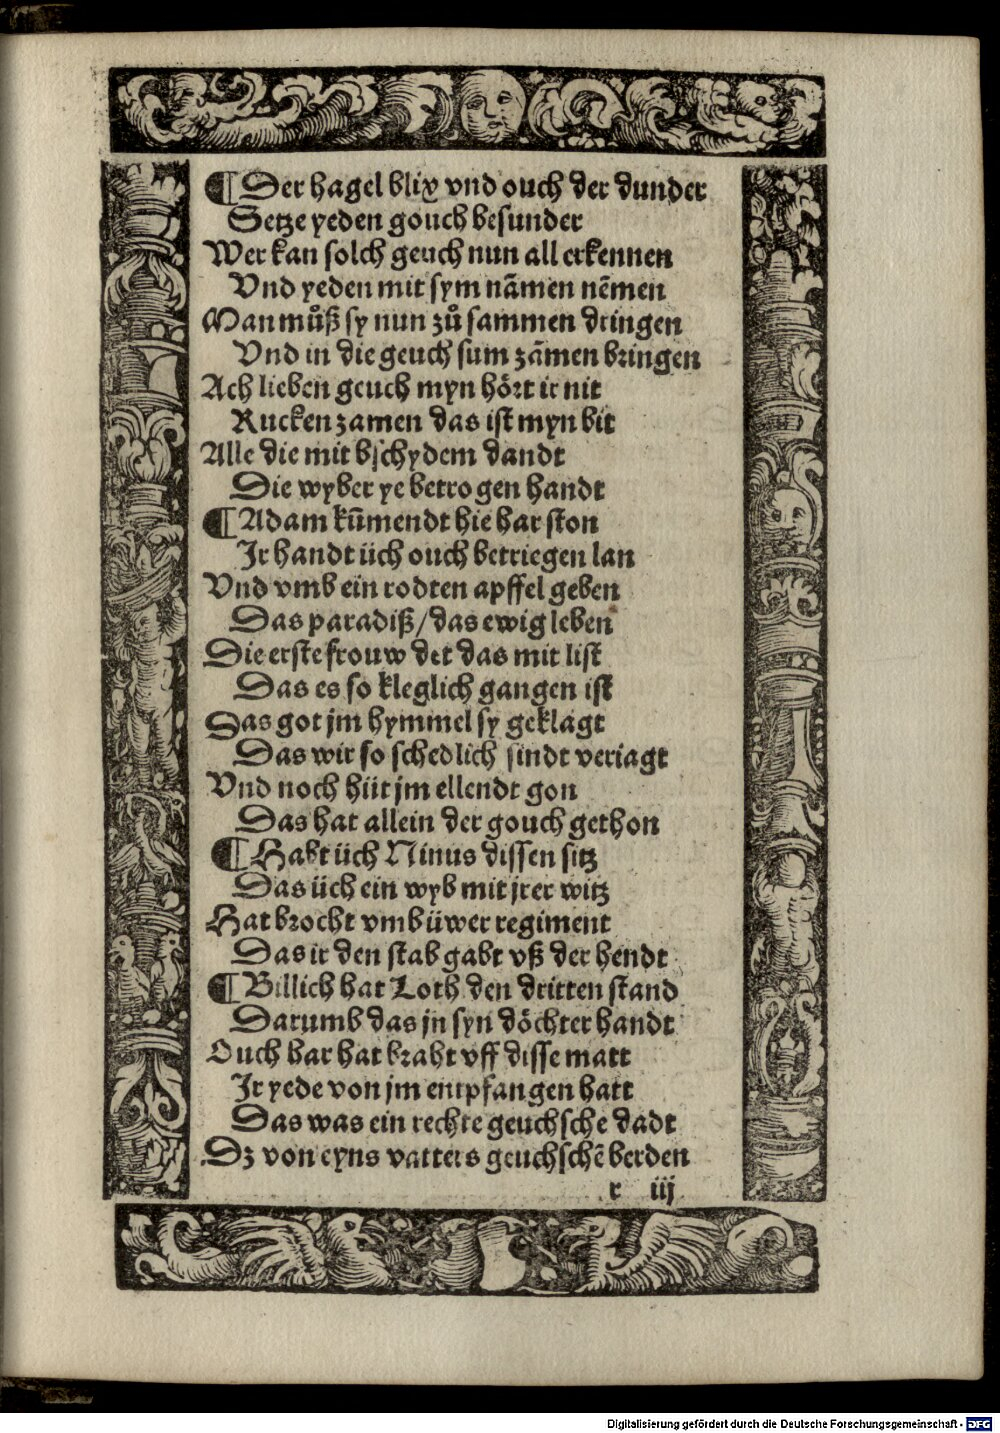 ¶ Der hagel blix vnd ouch der dunder
Setze yeden gouch besunder
Wer kan solch geuch nun all erkennen
Vnd yeden mit sym nãmen nẽmen
Man můß sy nun zů sammen dringen
Vnd in die geuch sum zãmen bringen
Ach lieben geuch myn hört ir nit
Rucken zamen das ist myn bit
Alle die mit bschydem dandt
Die wyber ye betrogen handt
¶ Adam kũmendt hie har ston
Ir handt üch ouch betriegen lan
Vnd vmb ein rodten apffel geben
Das paradiß/ das ewig leben
Die erste frouw det das mit list
Das es so kleglich gangen ist
Das got jm hymmel sy geklagt
Das wir so schedlich sindt veriagt
Vnd noch hüt jm ellendt gon
Das hat allein der gouch gethon
¶ Habt üch Ninus dissen sitz
Das üch ein wyb mit jrer witz
Hat brocht vmb üwer regiment
Das ir den stab gabt vß der hendt
¶ Billich hat Loth den dritten stand
Darumb das jn syn döchter handt
Ouch har hat braht vff disse matt
Ir yede von jm entpfangen hatt
Das was ein rechte geuchsche dadt
Dz von eyns vatters geuchschẽ berden
r iij
Digitalisierung gefördert durch die Deutsche Forschungsgemeinschaft - DFG